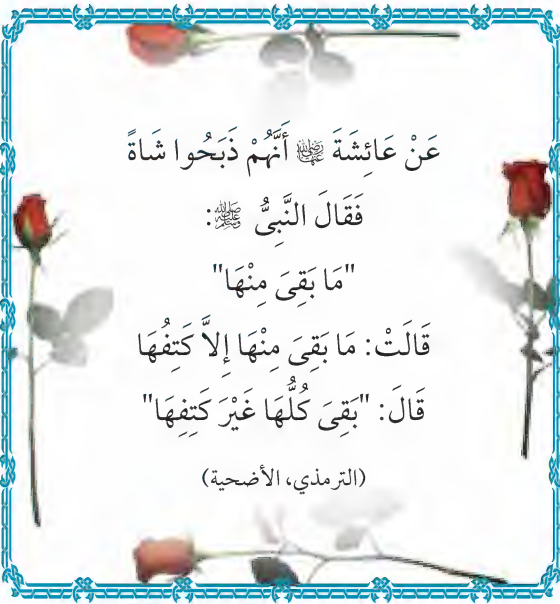 عَنْ عَائِشَةَ رضي الله عنها أَنَّهُمْ ذَبَحُوا شَاةً
فَقَالَ النَّبِىُّ ﷺ:
"مَا بَقِىَ مِنْهَا"
قَالَتْ: مَا بَقِىَ مِنْهَا إِلاَّ كَتِفُهَا
قَالَ: "بَقِىَ كُلُّهَا غَيْرَ كَتِفِهَا"
(الترمذي، الأضحية)